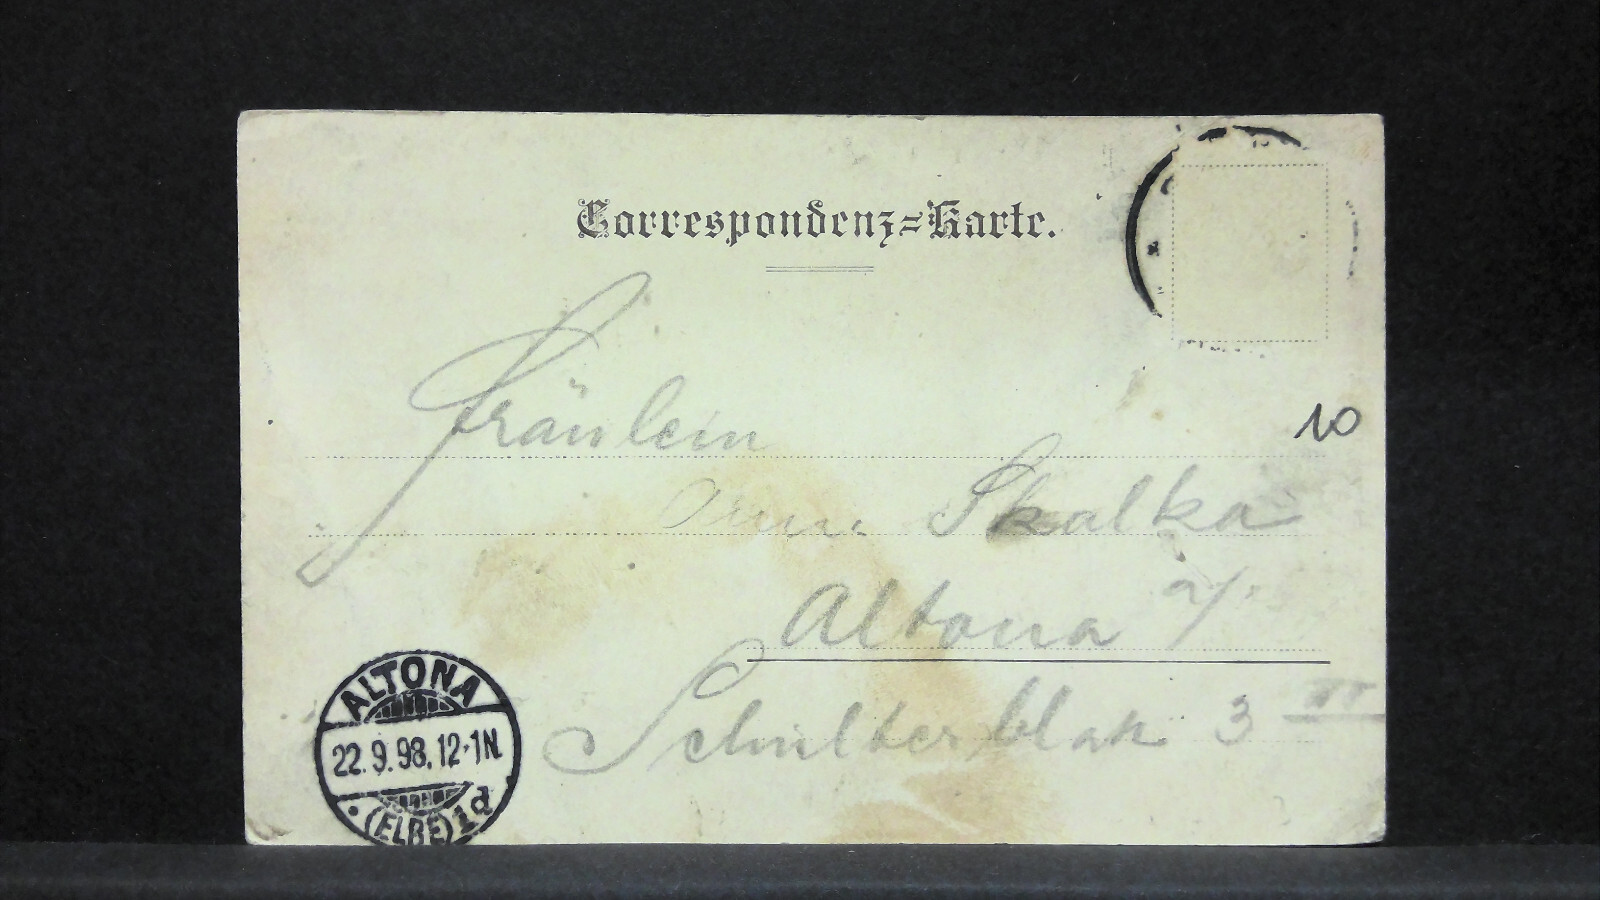 Correspondenz=Karte.
10
Fräulein
Anna Skalka
Altona a/
Schulterblatt 3 III
ALTONA
22.9.98.12-1N.
(ELBE) 1d